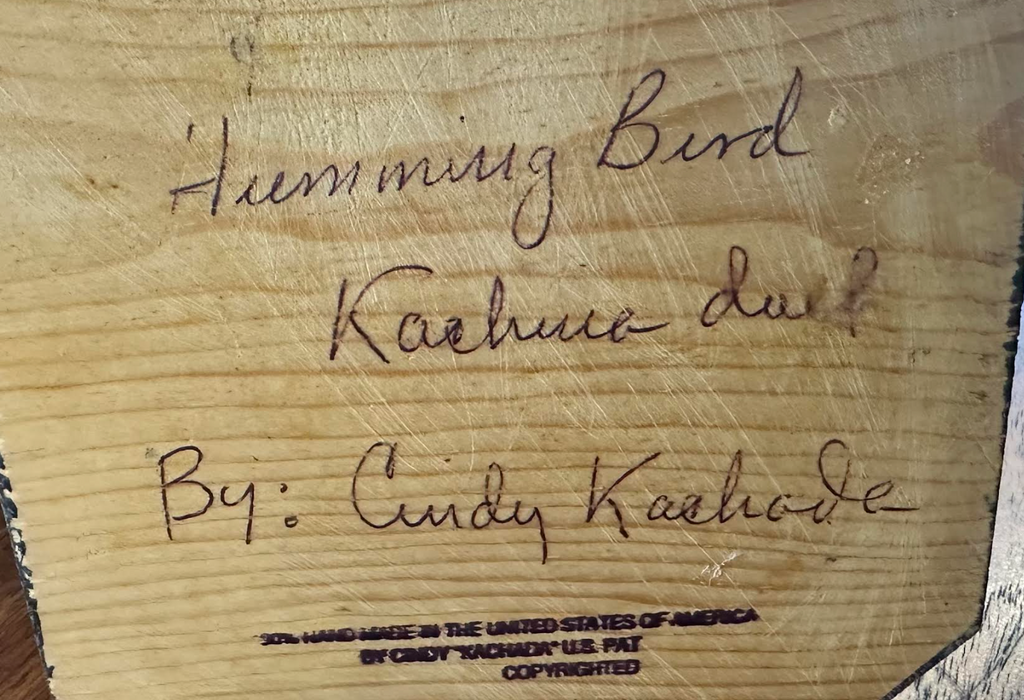 Humming Bird
Kachina doll
By: Cindy Kachada
HAND MADE IN THE UNITED STATES OF AMERICA
BY CINDY "KACHADA" U.S. PAT
COPYRIGHTED